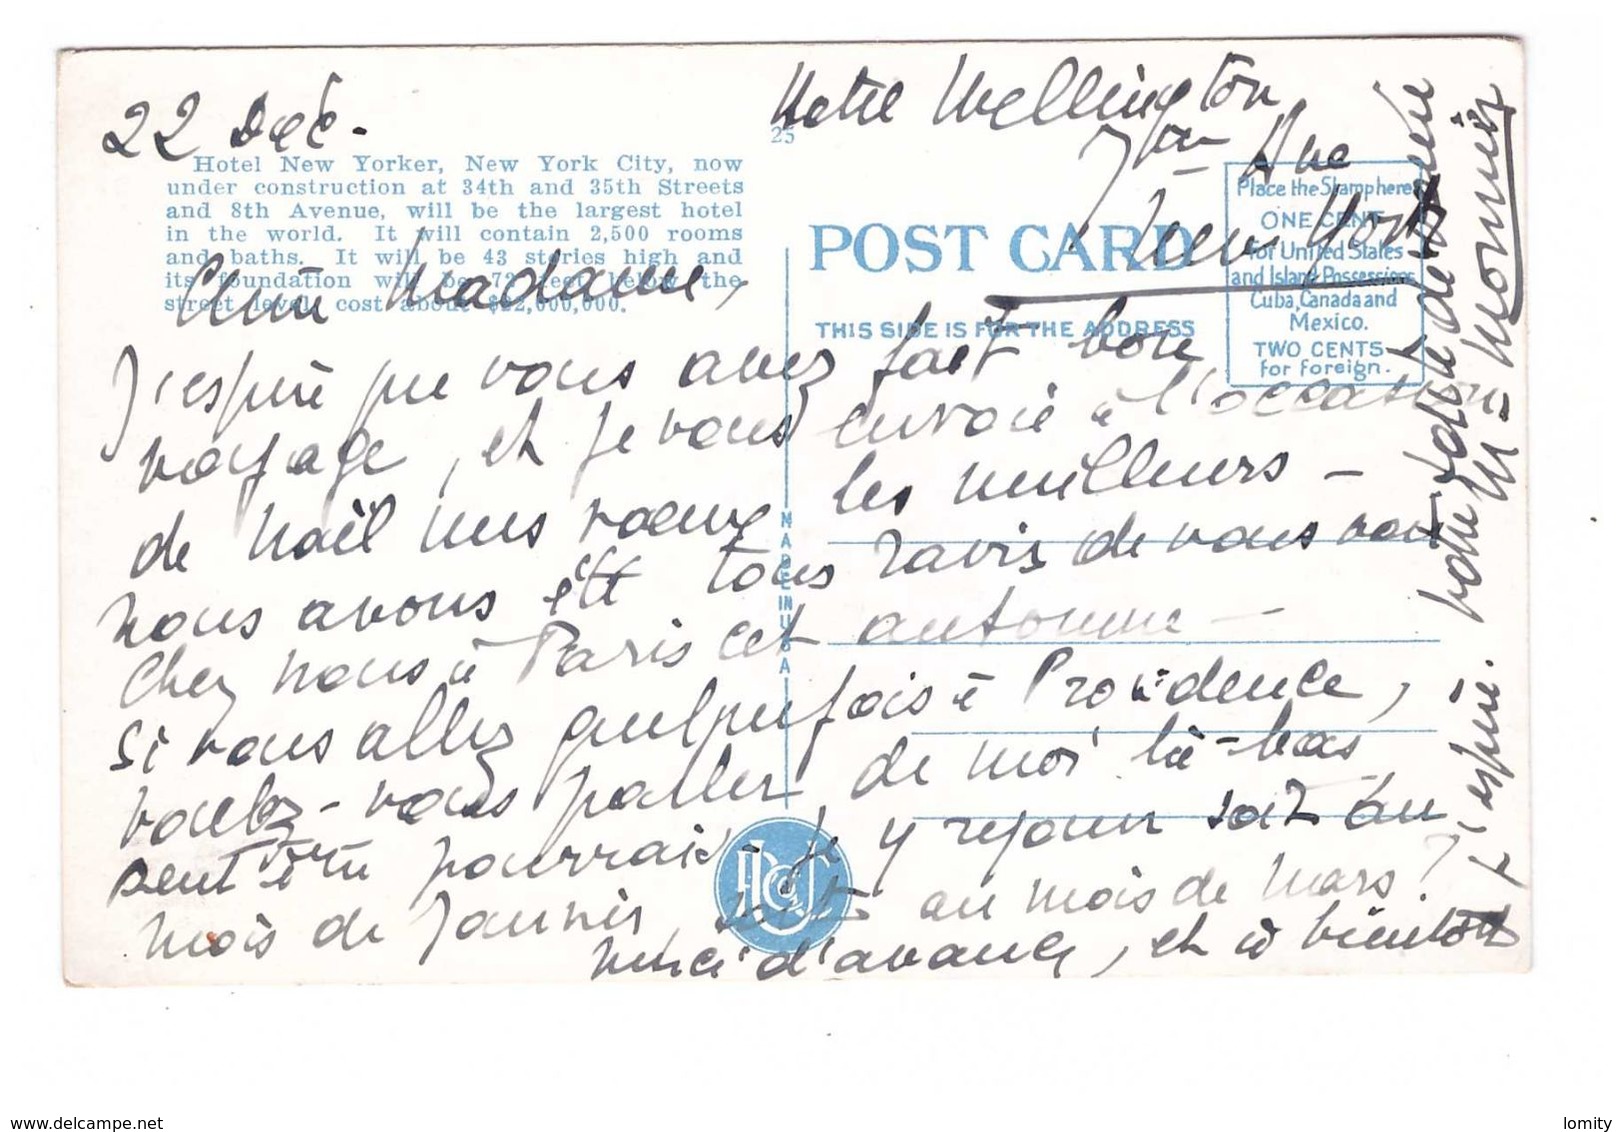 22 Déc.
Hotel Wellington
7ème Ave
New York
25
Hotel New Yorker, New York City, now
under construction at 34th and 35th Streets
and 8th Avenue, will be the largest hotel
in the world. It will contain 2,500 rooms
and baths. It will be 43 stories high and
its foundation will be 72 feet below the
street level, cost about $22,000,000.
POST CARD
THIS SIDE IS FOR THE ADDRESS
Place the Stamp here
ONE CENT
for United States
and Island Possessions
Cuba, Canada and
Mexico.
TWO CENTS
for Foreign.
MADE IN U.S.A.
Chère Madame,
J'espère que vous avez fait bon
voyage, et je vous envoie à l'occasion
de Noël mes voeux les meilleurs -
nous avons été tous ravis de vous voir
chez nous à Paris cet automne -
Si vous allez quelquefois à Providence,
voulez-vous parler de moi là-bas
peut être pourrais-je y rejouer soit au
mois de Janvier, soit au mois de Mars?
Merci d'avance, et à bientôt
j'espère. votre
M. Monnier
www.delcampe.net
lomity